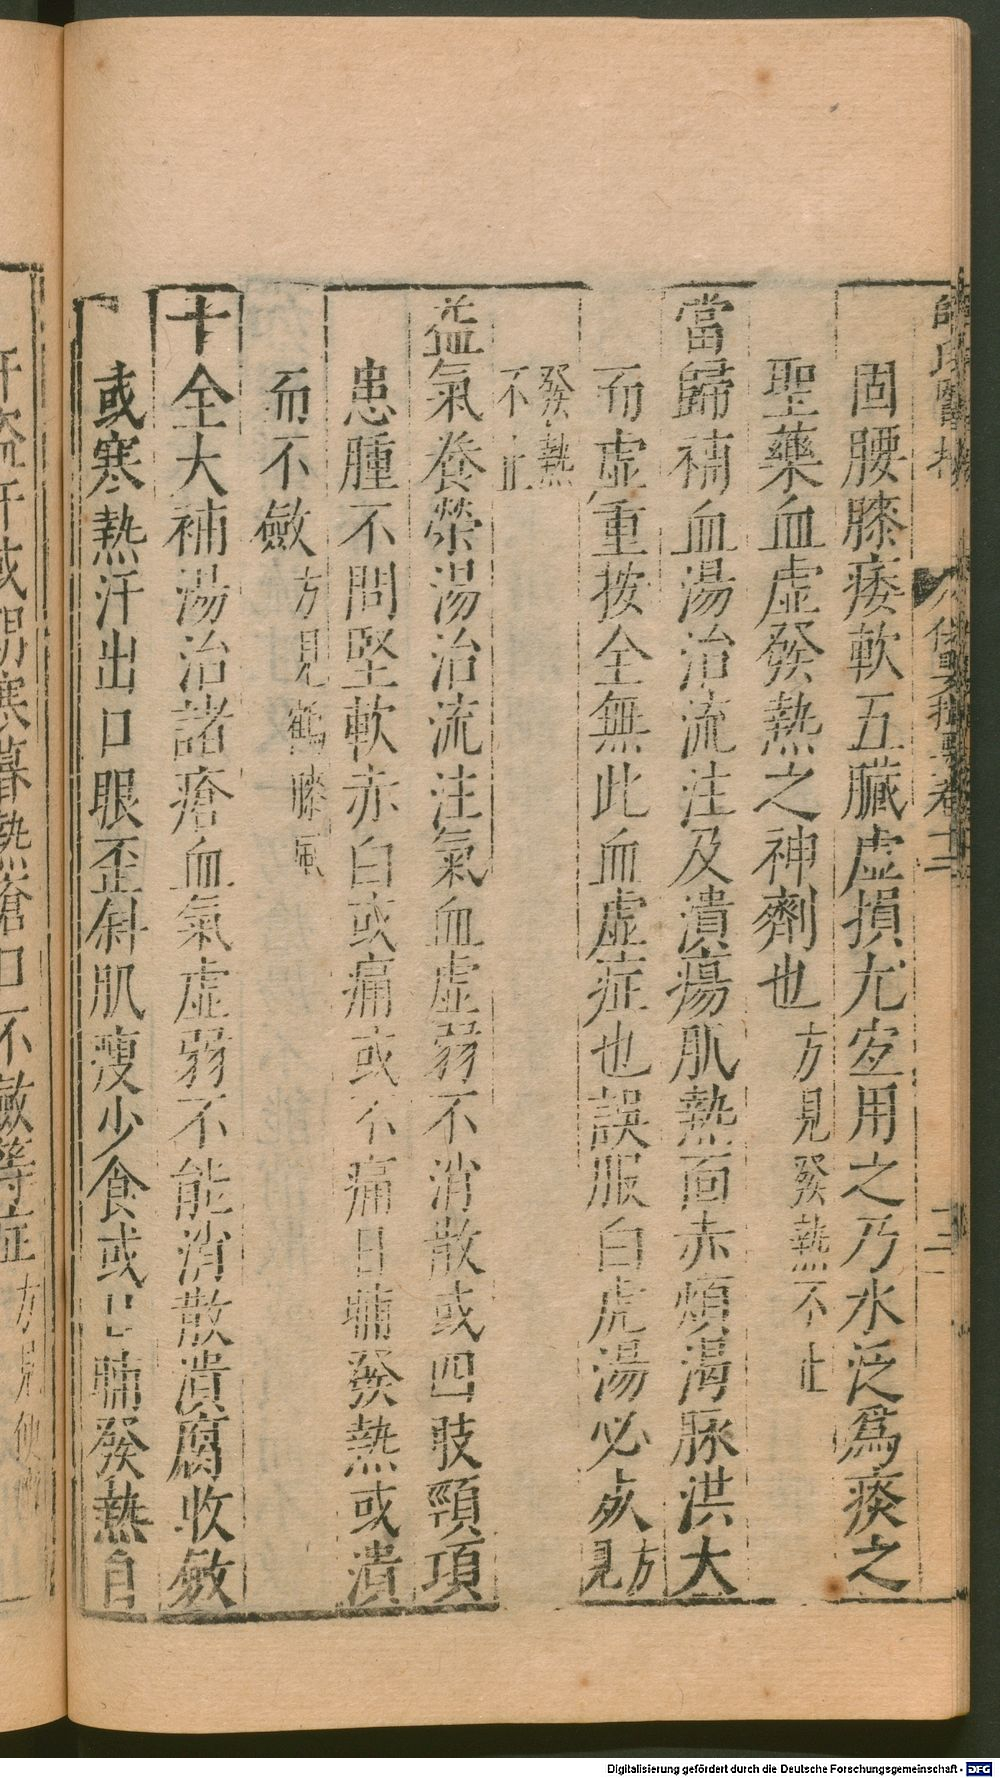 固腰膝痿軟五臟虛損尤宜用之乃水泛爲痰之
聖藥血虛發熱之神劑也方見發熱不止
當歸補血湯治流注及潰瘍肌熱面赤煩渴脉洪大
而虛重按全無此血虛症也誤服白虎湯必死方見
發熱
不止
益氣養榮湯治流注氣血虛弱不消散或四肢頸項
患腫不問堅軟赤白或痛或不痛日晡發熱或潰
而不斂方見鶴膝風
十全大補湯治諸瘡血氣虛弱不能消散潰腐收斂
或寒熱汗出口眼歪斜肌瘦少食或日晡發熱自
汗盜汗或惡寒暮熱瘡口不斂等症方見便
Digitalisierung gefördert durch die Deutsche Forschungsgemeinschaft - DFG